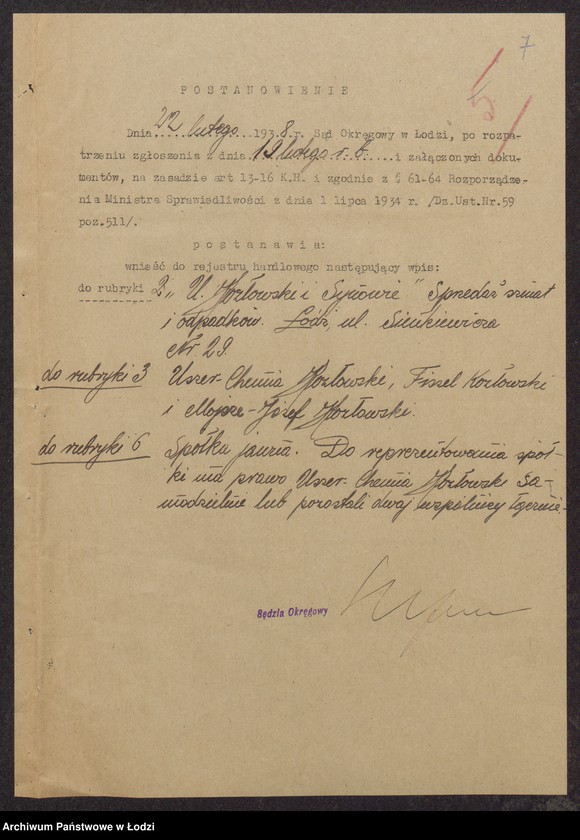 7
5
POSTANOWIENIE
Dnia 22 lutego 1938 r. Sąd Okręgowy w Łodzi, po rozpa-
trzeniu zgłoszenia z dnia 19 lutego r. b. i załączonych doku-
mentów, na zasadzie art 13-16 K.H. i zgodnie z § 61-64 Rozporządze-
nia Ministra Sprawiedliwości z dnia 1 lipca 1934 r. /Dz.Ust.Nr.59
poz.511/.
postanawia:
wnieść do rejestru handlowego następujący wpis:
do rubryki 2 „U. Kozłowski i Synowie" Sprzedaż szmat
i odpadków. Łódź, ul. Sienkiewicza
Nr 29.
do rubryki 3 Uszer-Chemia Kozłowski, Fiszel Kozłowski
i Mojsze-Josef Kozłowski.
do rubryki 6 Spółka jawna. Do reprezentowania spół-
ki ma prawo Uszer-Chemia Kozłowski sa-
modzielnie lub pozostali dwaj wspólnicy łącznie.
Sędzia Okręgowy
Archiwum Państwowe w Łodzi